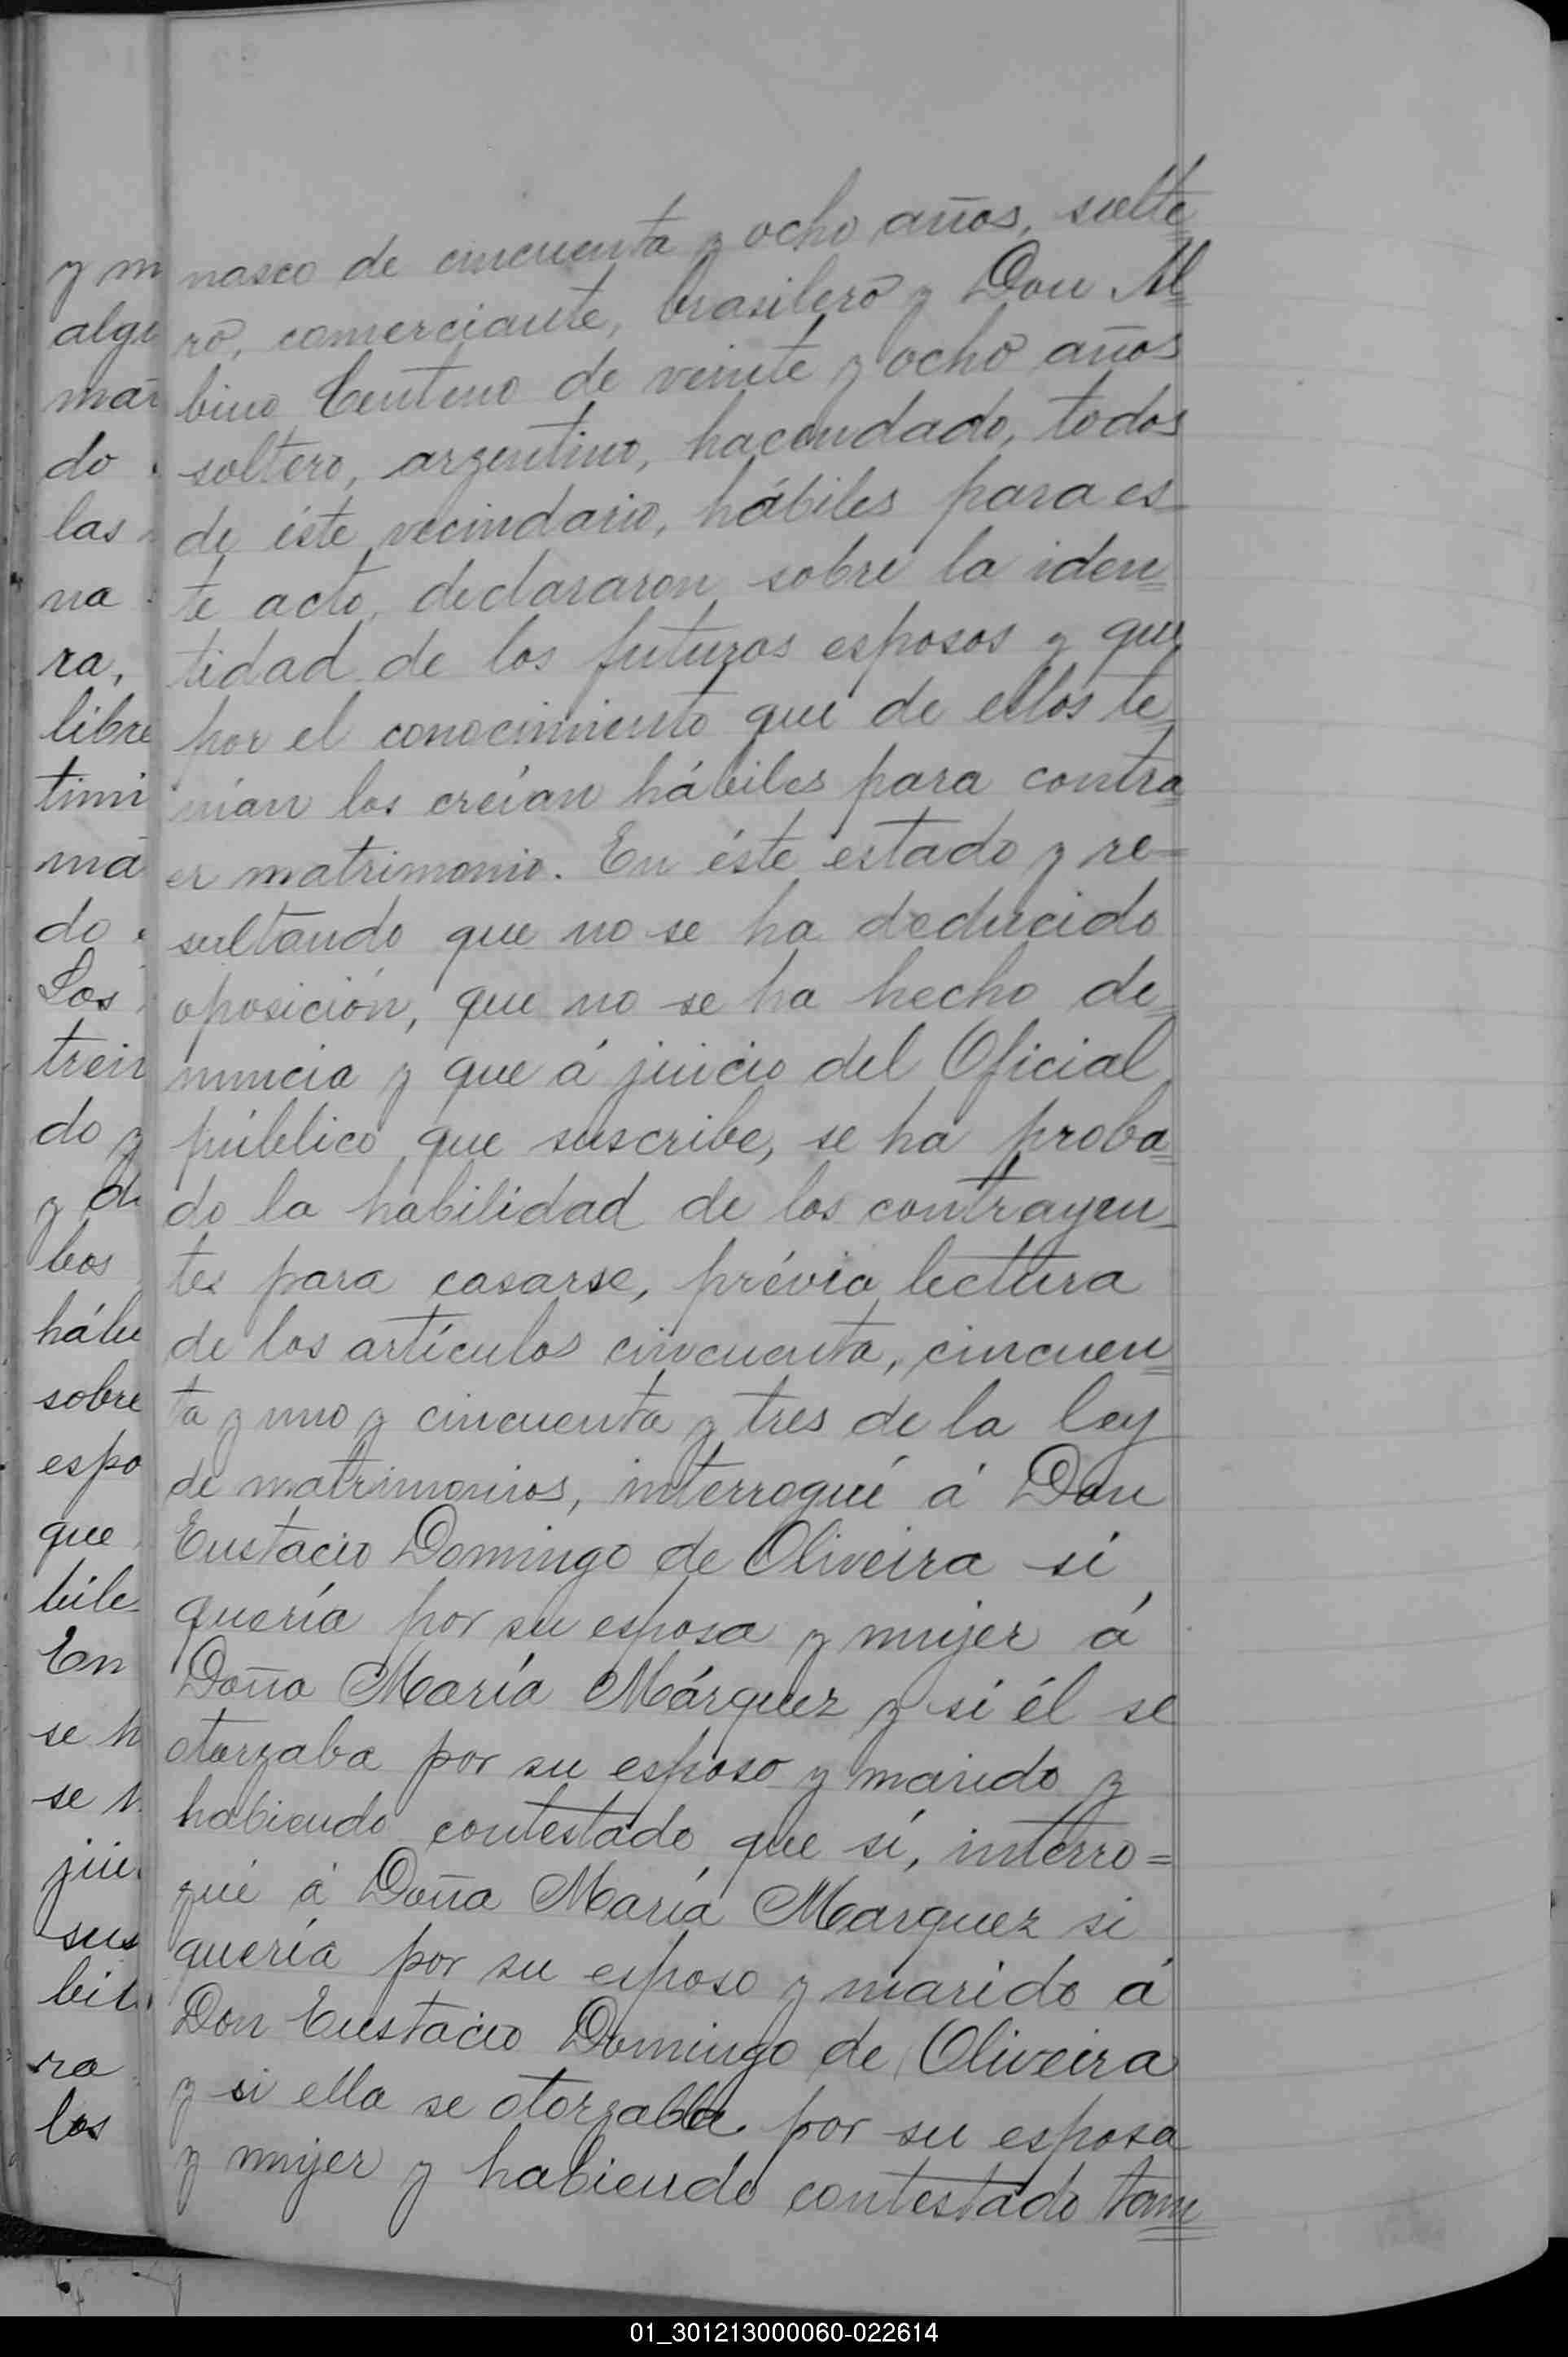 nasco de cincuenta y ocho años, solte=
ro, comerciante, brasilero y Don Al=
bino Centeno de veinte y ocho años
soltero, argentino, hacendado, todos
de éste vecindario, hábiles para es=
te acto, declararon sobre la iden=
tidad de los futuros esposos y que
por el conocimiento que de ellos te=
nían los creían hábiles para contra=
er matrimonio. En éste estado y re=
sultando que no se ha deducido
oposición, que no se ha hecho de=
nuncia y que á juicio del Oficial
público que suscribe, se ha proba=
do la habilidad de los contrayen=
tes para casarse, prévia lectura
de los artículos cincuenta, cincuen=
ta y uno y cincuenta y tres de la ley
de matrimonios, interrogué á Don
Eustacio Domingo de Oliveira si
quería por su esposa y mujer á
Doña María Márquez y si él se
otorgaba por su esposo y marido y
habiendo contestado que sí, interro=
gué á Doña María Marquez si
quería por su esposo y marido á
Don Eustacio Domingo de Oliveira
y si ella se otorgaba por su esposa
y mujer y habiendo contestado tam=
y m
algu
mar
do
las
na
ra,
libre
timi
ma
do
Los
trein
do y
y d
bos
hábi
sobre
espo
que
bile
En
se h
se h
jui
sus
bil
ra
los
01_301213000060-022614